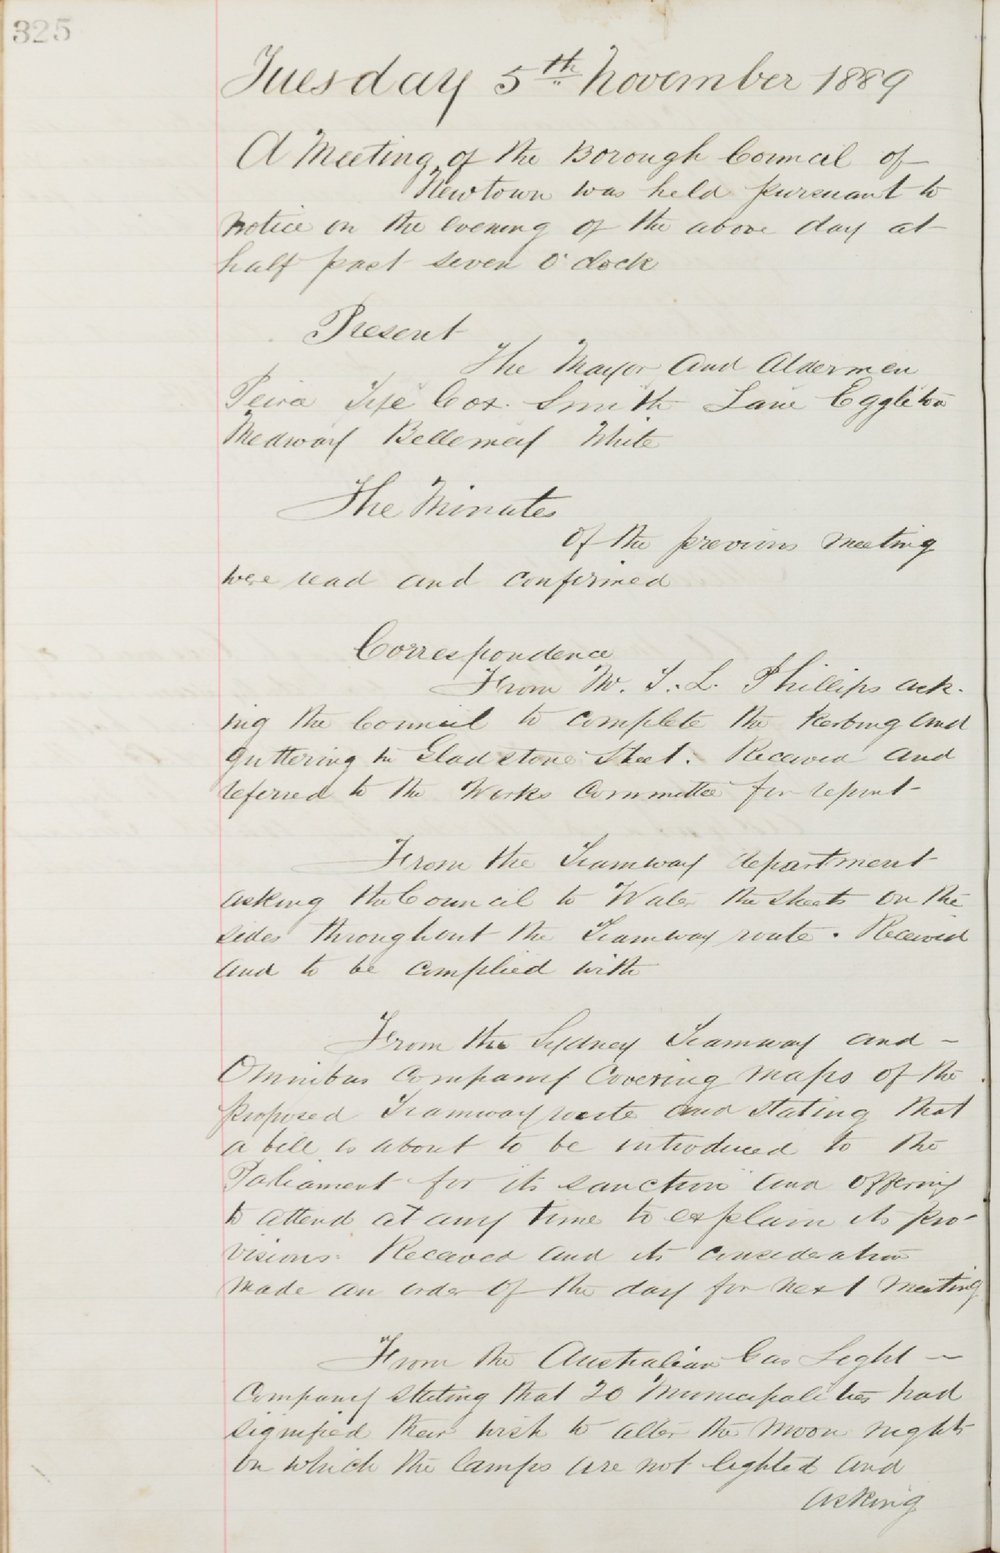 325
Tuesday 5th November 1889
A Meeting of the Borough Council of
Newtown was held pursuant to
notice on the evening of the above day at
half past seven o'clock
Present
The Mayor and Aldermen
Smith Lane Eggleton
Medway Bellemey White
The Minutes
of the previous meeting
were read and confirmed
Correspondence
From Mr. T. L. Phillips ask-
ing the Council to complete the Kerbing and
guttering in Gladstone Street. Received and
referred to the Works Committee for report
From the Tramway department
asking the Council to Water the streets on the
sides throughout the Tramway route. Received
and to be complied with
From the Sydney Tramway and
Omnibus Company Covering maps of the
proposed Tramway route and stating that
a bill is about to be introduced to the
Parliament for its sanction and offering
to attend at any time to explain its pro-
visions. Received and its consideration
made an order of the day for next meeting
From the Australian Gas Light
Company stating that 20 Municipalities had
signified their wish to alter the moon nights
on which the lamps are not lighted and
asking